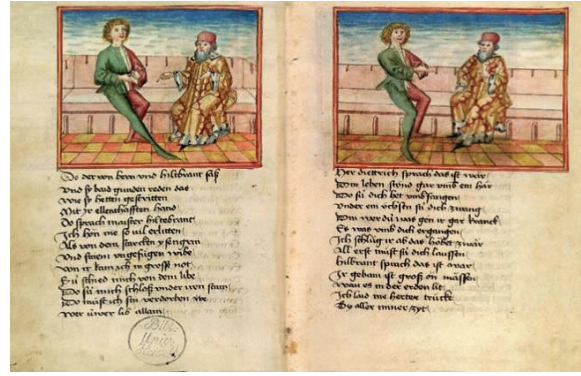 Do der von bern vnd hiltbrant saß
Vnd so bald gunden reden das
wie sy hetten gestritten
Mit ir ellenthafften hand
Do sprach maister hiltebrant
Ich hon nie so vil erlitten
Als von dem starcken
Vnd sinem vngefügen wibe
von ir kam ich in grosse not
Sü schied mich von dem libe
Do sü mich schloß vnder
Do müst ich sin verdorben
wer üwer lib allain
Her diettrich sprach das ist war
Dim leben stond gar vmb ein har
Do sü dich het vmbfangen
Vnder ein vchsen sü dich zwang
Din wer dü was gen ir gar kranck
Es was vmb dich ergangen
Ich schlüg ir ab das hobet zwar
All erst müst sü dich laussen
hilbrant sprach das ist war
Ir gebain ist groß on massen
wan es in der erden lit
Ich lad nie herter trückt
By aller miner zyt